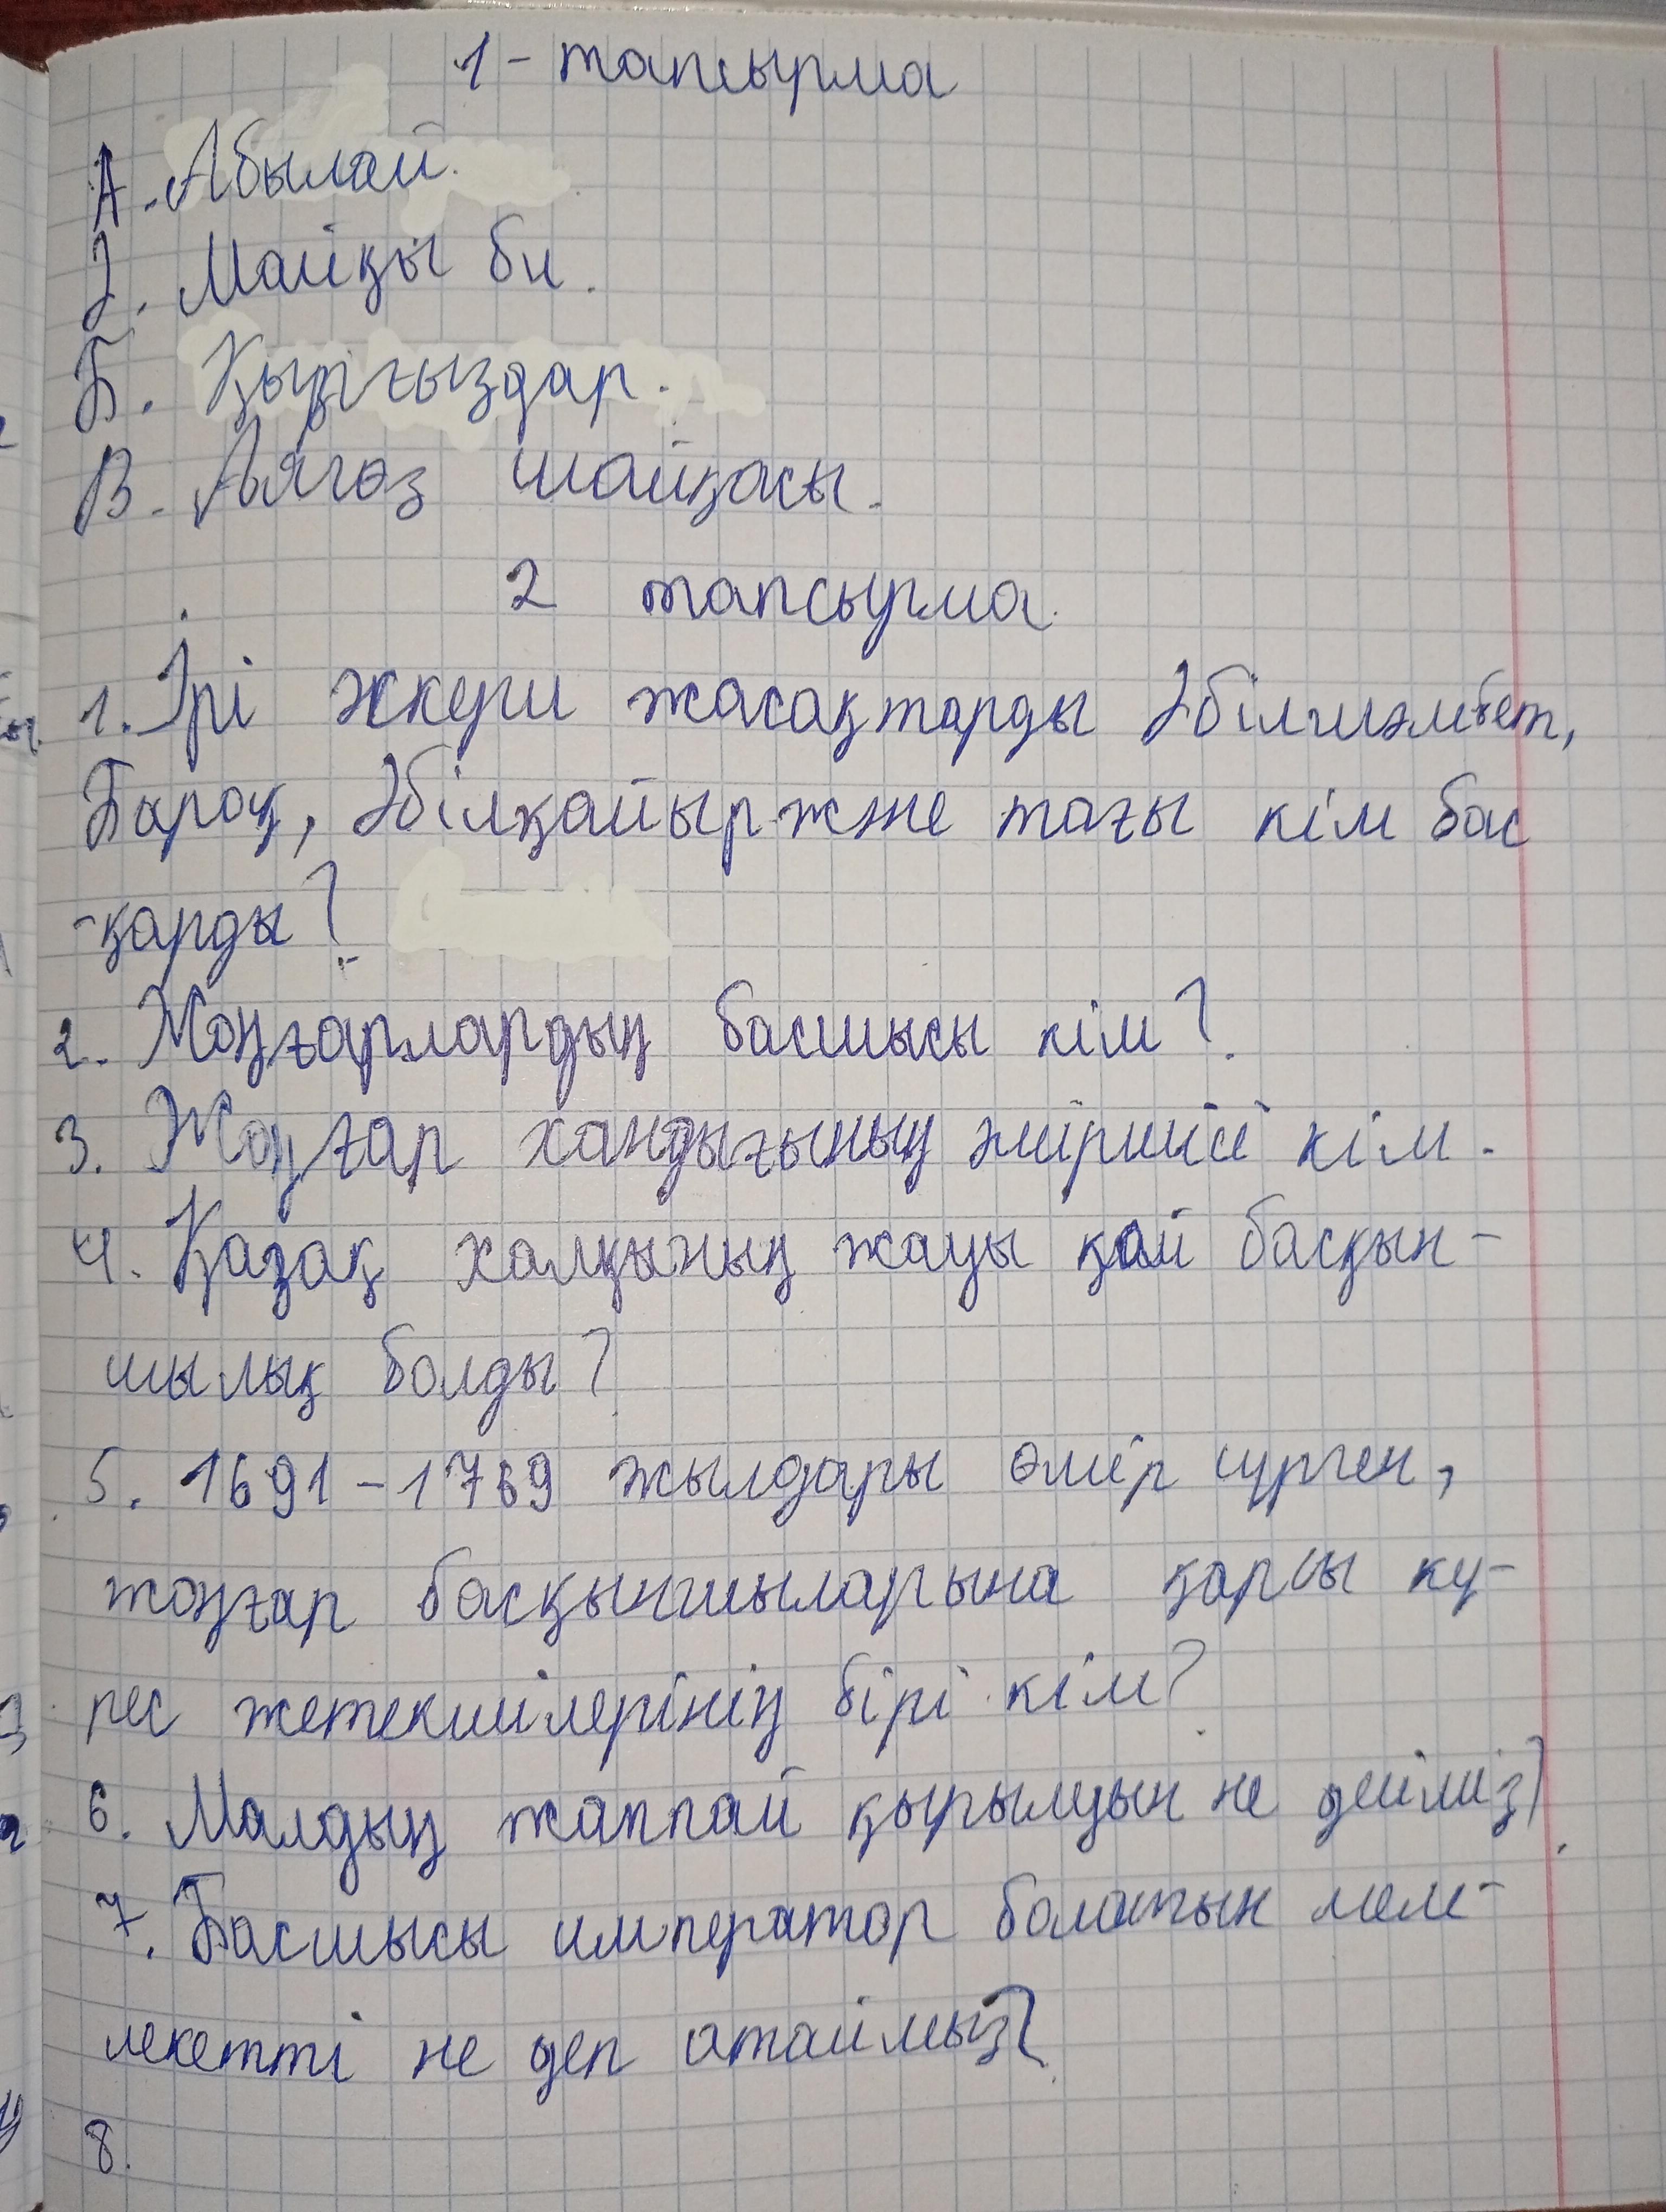 1 - тапсырма
А. Абылай.
Ә. Майқы би.
Б. Қырғыздар.
В. Аягөз шайқасы.
2 тапсырма.
1. Ірі әскери жасақтарды Әбілмәмбет,
Барақ, Әбілқайыр және тағы кім бас
-қарды?
2. Жоңғарлардың басшысы кім?
3. Жоңғар хандығының әміршісі кім.
4. Қазақ халқының жауы қай басқын-
шылық болды?
5. 1691-1769 жылдары өмір сүрген,
жоңғар басқыншыларына қарсы кү-
рес жетекшілерінің бірі кім?
6. Малдың жаппай қырылуын не дейміз?
7. Басшысы император болатын мем-
лекетті не деп атаймыз?
8.